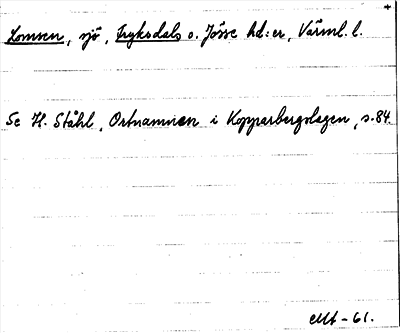 Lomsen, sjö, Fryksdals o. Jösse hd:er, Värml. l.
Se H. Ståhl, Ortnamnen i Kopparbergslagen, s. 84.
-61.